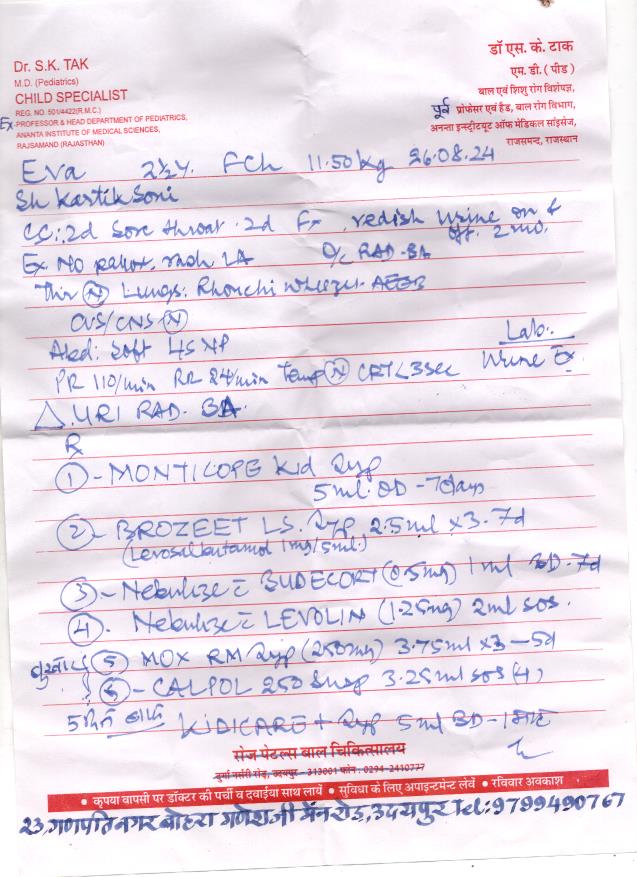 Dr. S.K. TAK
M.D. (Pediatrics)
CHILD SPECIALIST
REG. NO. 501/4422(R.M.C.)
Ex PROFESSOR & HEAD DEPARTMENT OF PEDIATRICS,
ANANTA INSTITUTE OF MEDICAL SCIENCES,
RAJSAMAND (RAJASTHAN)
डॉ एस. के. टाक
एम. डी. ( पीड )
बाल एवं शिशु रोग विशेषज्ञ,
पूर्व प्रोफेसर एवं हैड, बाल रोग विभाग,
अनन्ता इन्स्टीट्यूट ऑफ मेडिकल साइंसेज,
राजसमन्द, राजस्थान
Eva 2½y. FCh 11.50kg 26.08.24
Sh Kartik Soni
CC: 2d Sore throat. 2d redish urine on &
off. 2mo.
Ex No pallor, rash LA O/c RAD-BA
Thr (N) Lungs: Rhonchi wheezes
CVS/CNS (N)
Abd: Soft LS NP
Lab.
PR 110/min RR 24/min Temp (N) CRT<3sec Urine Ex
Δ. URI RAD-BA
Rx
① - MONTICOPE Kid Syp
5ml. OD - 7days
② - BROZEET LS. Syp 2.5ml x3-7d
(Levosalbutamol 1mg/5ml.)
③ - Nebulize c̄ BUDECORT (0.5mg) 1ml BD-7d
④. Nebulize c̄ LEVOLIN (1.25mg) 2ml SOS.
बुखार ⑤ MOX RM Syp (250mg) 3.75ml x3-5d
⑥ - CALPOL 250 Susp 3.25ml sos (4)
5 दिन बाद KIDICARE + Syp 5ml BD-1माह
सेज पेटल्स बाल चिकित्सालय
दुर्गा नर्सरी रोड़, उदयपुर - 313001 फोन : 0294-2410777
• कृपया वापसी पर डॉक्टर की पर्ची व दवाईया साथ लायें • सुविधा के लिए अपाइन्टमेन्ट लेवें • रविवार अवकाश
23, गणपति नगर बोहरा गणेशजी मेन रोड, उदयपुर Tel: 9799490767